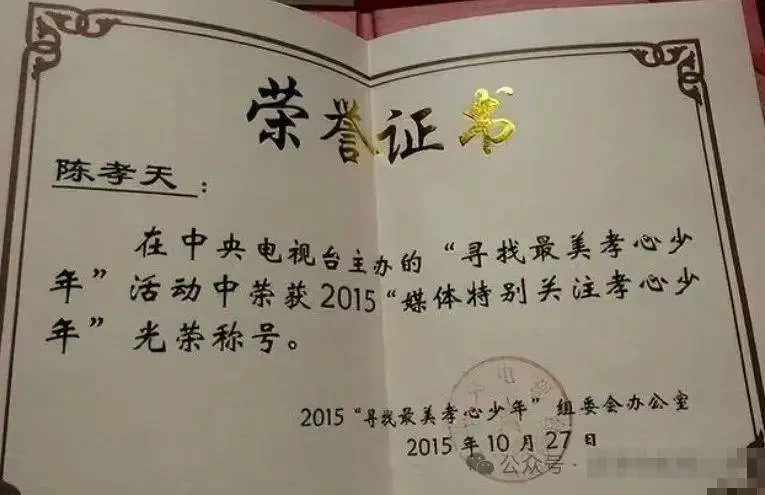 荣誉证书
陈孝天：
在中央电视台主办的“寻找最美孝心少
年”活动中荣获2015“媒体特别关注孝心少
年”光荣称号。
2015“寻找最美孝心少年”组委会办公室
2015年10月27日
公众号·